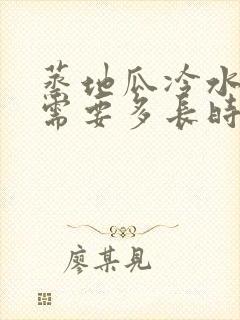 蒸地瓜冷水
需要多長時
廖某見